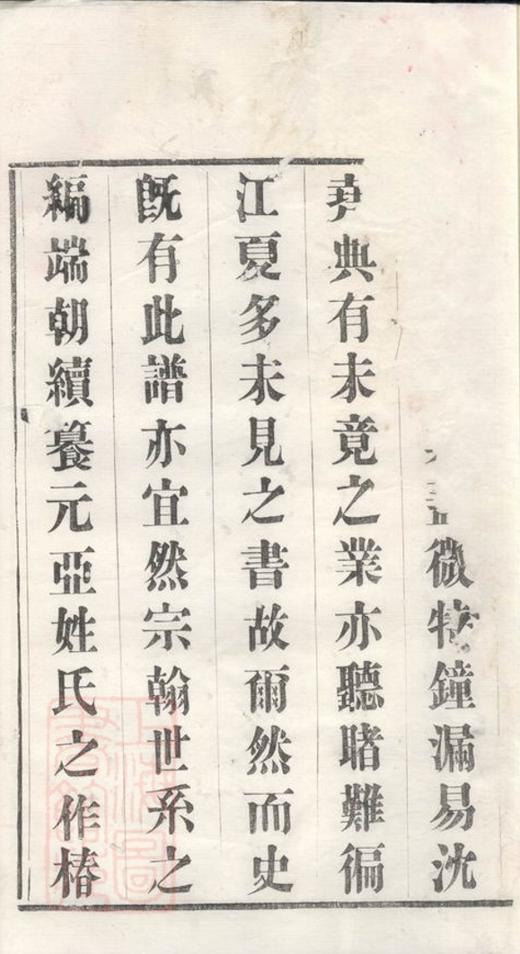 微特鐘漏易沈
典有未竟之業亦聽睹難徧
江夏多未見之書故爾然而史
旣有此譜亦宜然宗翰世系之
編端朝續元亞姓氏之作椿
上海圖書館藏